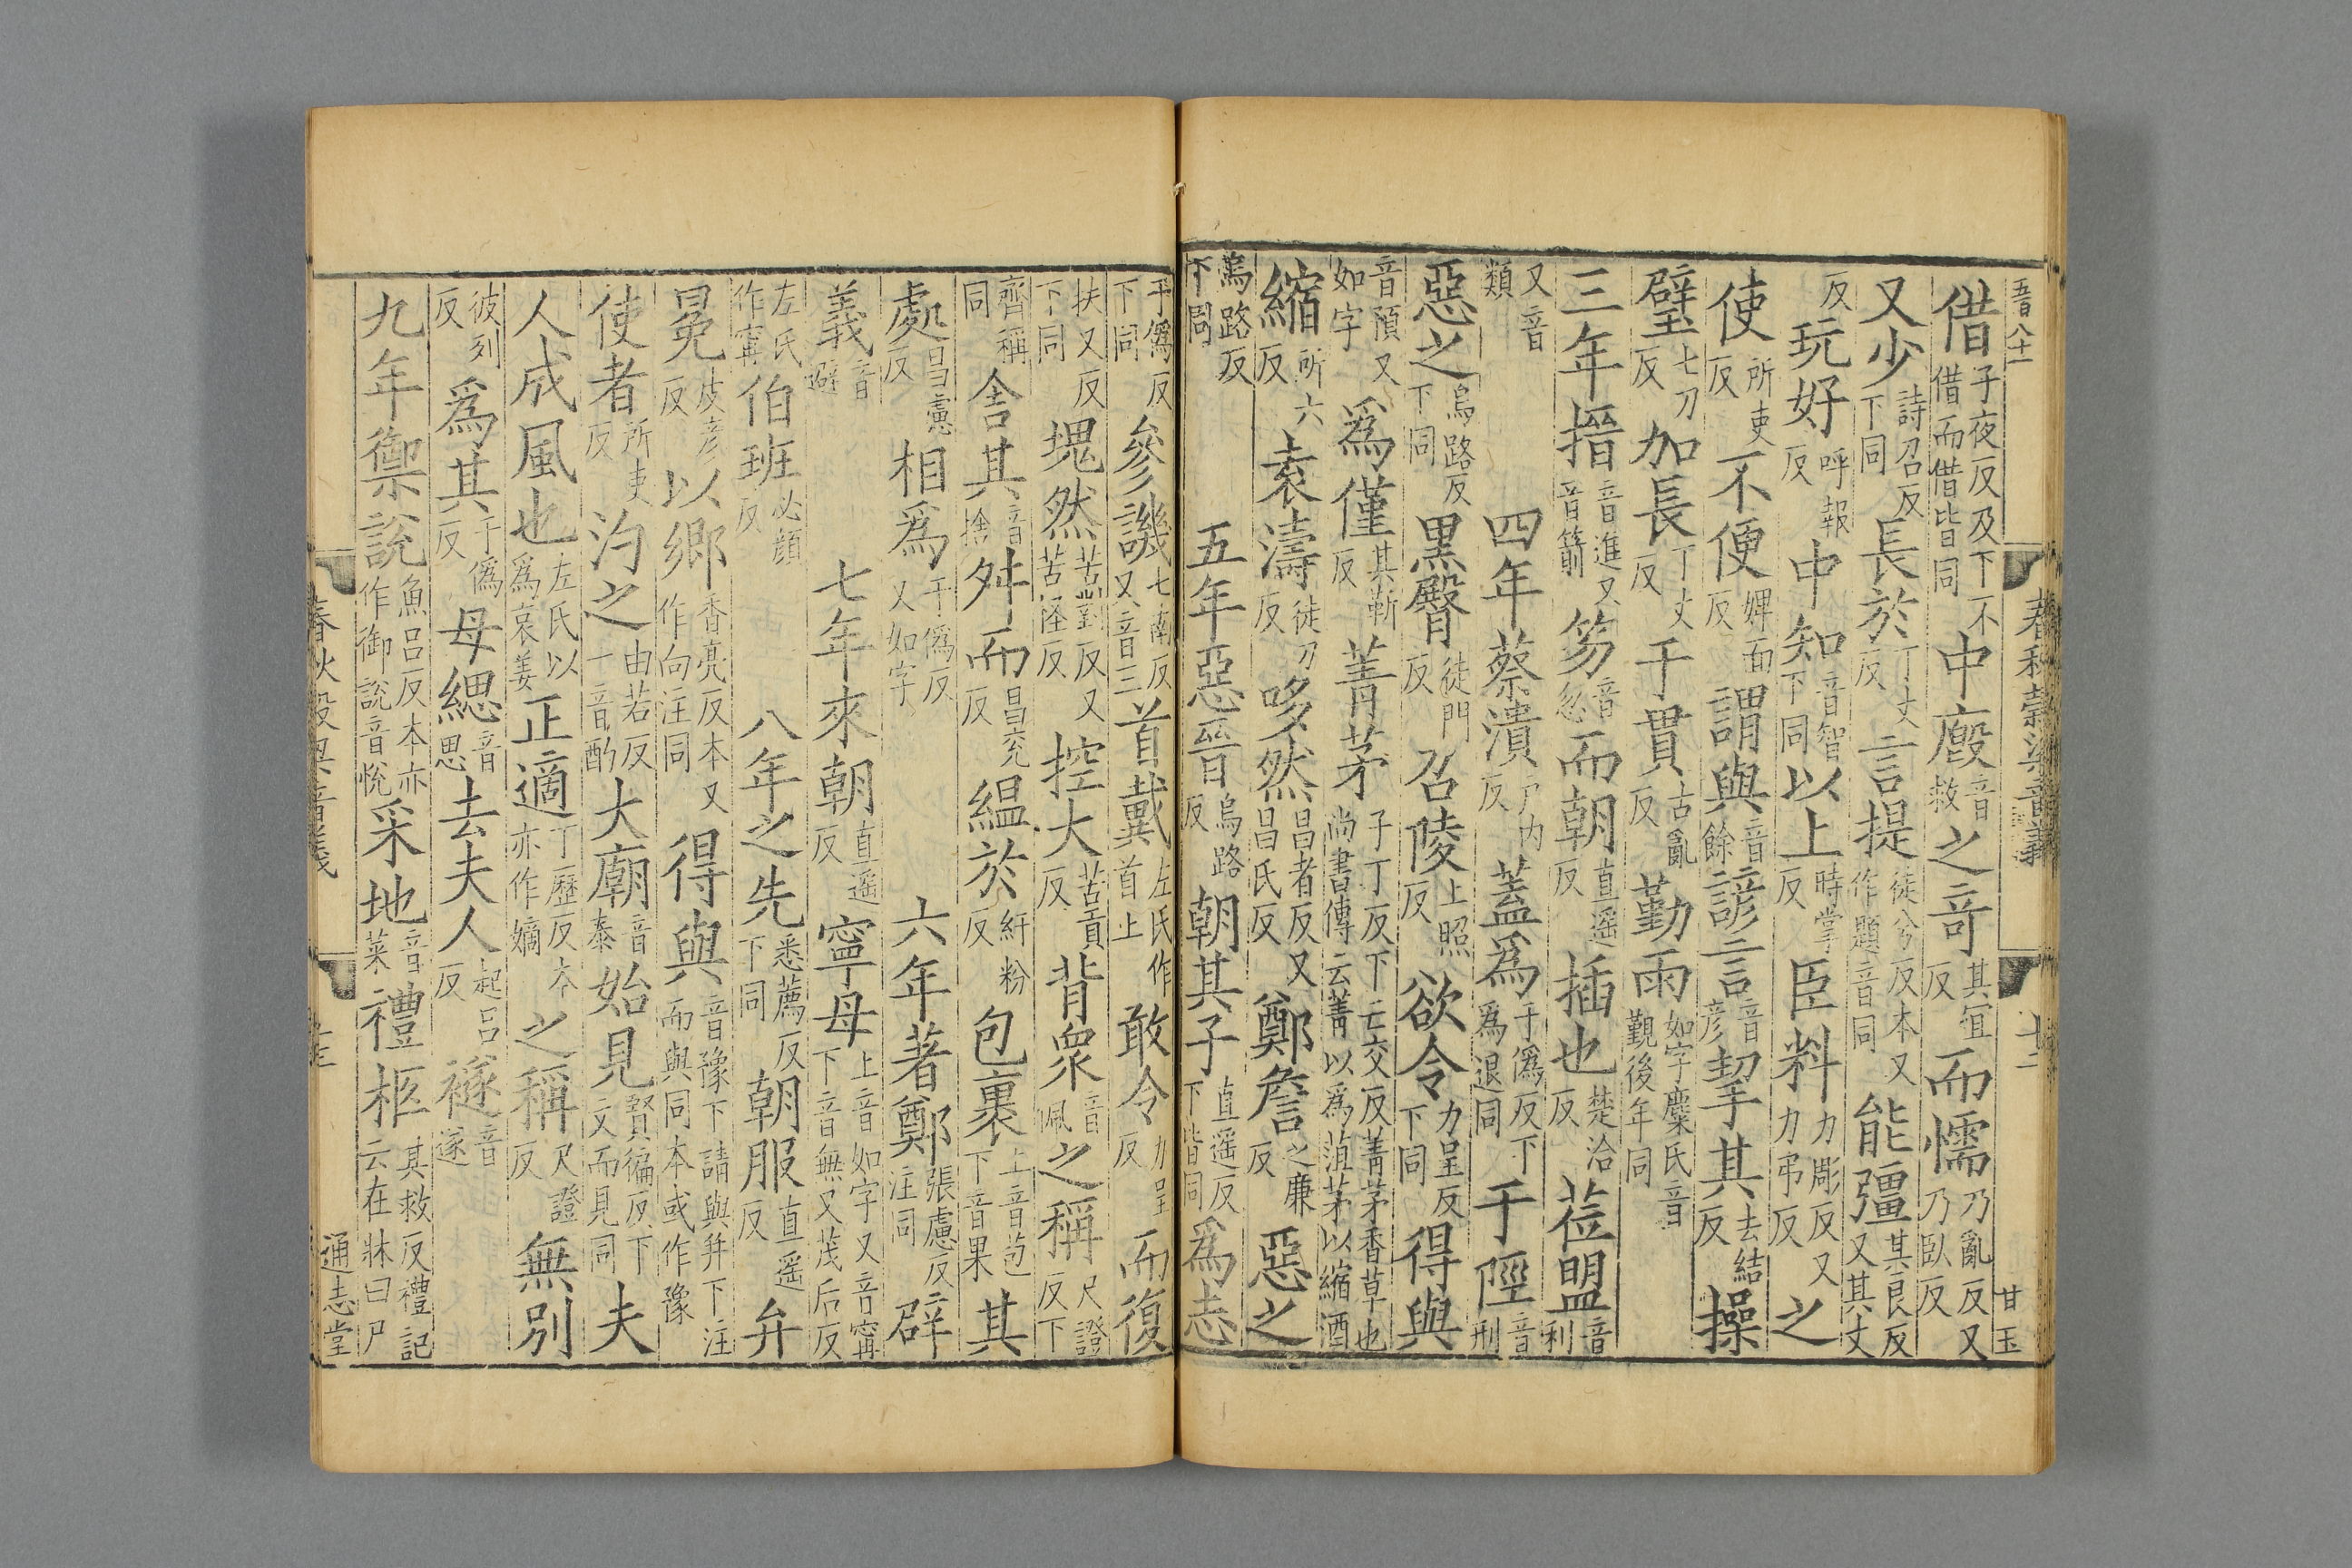 五百八十一
春秋穀梁音義
十二
甘玉
借子夜反及下不借而借皆同中廄音救之奇其宜反而懦乃亂反又乃臥反
又少詩召反下同長於丁丈反言提徒兮反本又作題音同能彊其良反又其丈
反玩好呼報反中知音智下同以上時掌反臣料力彫反又力弔反之
使所吏反不便婢面反謂與音餘諺言音彦挈其去結反操
璧七刀反加長丁丈反于貫古亂反勤雨如字麋氏音覲後年同
三年搢音進又音箭笏音忽而朝直遥反插也楚洽反莅盟音利
又音類四年蔡潰戶內反蓋為于僞反下為退同于陘音刑
惡之烏路反下同黑臀徒門反召陵上照反欲令力呈反下同得與
音預又如字為僅其靳反菁茅子丁反下亡交反菁茅香草也尚書傳云菁以為菹茅以縮酒
縮所六反袁濤徒刀反哆然昌者反又昌氏反鄭詹之廉反惡之
烏路反下同五年惡晉烏路反朝其子直遥反下皆同為志
于僞反下同參譏七南反又音三首戴左氏作首上敢令力呈反而復
扶又反下同塊然苦對反又苦怪反控大苦貢反背衆音佩之稱尺證反下
齊稱同舍其音捨舛而昌兖反緼於紆粉反包裹上音苞下音果其
處昌慮反相為于僞反又如字六年著鄭張慮反注同辟
義音避七年來朝直遥反寧母上音如字又音甯下音無又茂后反
左氏作甯伯班必顔反八年之先悉薦反下同朝服直遥反弁
冕皮彦反以鄉香亮反本又作向注同得與音豫下請與并下注而與同本或作豫
使者所吏反汋之由若反一音酌大廟音泰始見賢徧反下文而見同夫
人成風也左氏以為哀姜正適丁歷反本亦作嫡之稱尺證反無別
彼列反為其于僞反母緦音思去夫人起呂反襚音遂
九年禦說魚呂反本亦作御說音悅采地音菜禮柩其救反禮記云在牀曰尸
春秋穀梁音義
通志堂